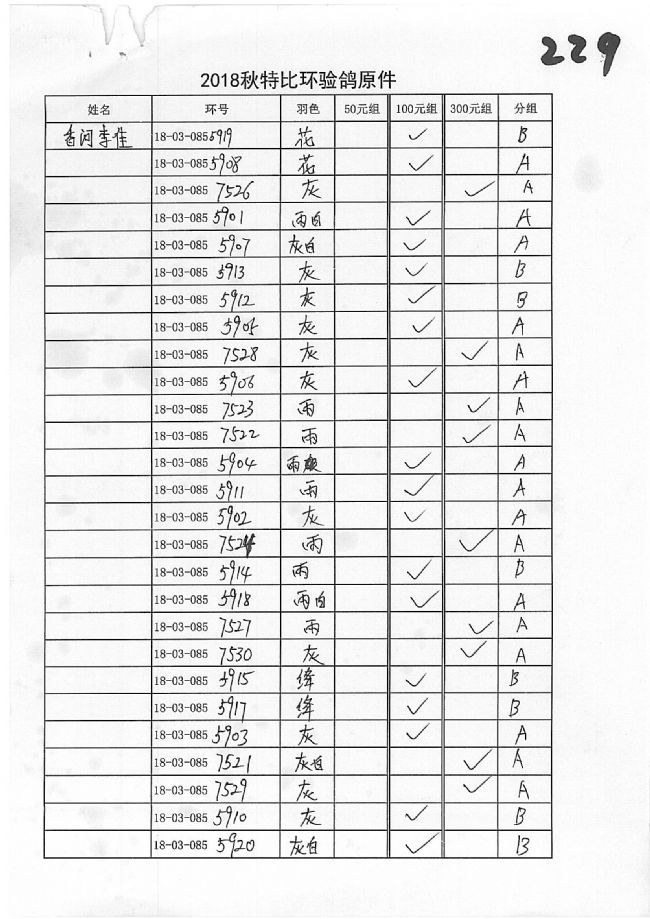 229
2018秋特比环验鸽原件
姓名 环号 羽色 50元组 100元组 300元组 分组
香河李佳 18-03-085 5919 花 ✓ B
18-03-085 5908 花 ✓ A
18-03-085 7526 灰 ✓ A
18-03-085 5901 雨白 ✓ A
18-03-085 5907 灰白 ✓ A
18-03-085 5913 灰 ✓ B
18-03-085 5912 灰 ✓ B
18-03-085 灰 ✓ A
18-03-085 7528 灰 ✓ A
18-03-085 5906 灰 ✓ A
18-03-085 7523 雨 ✓ A
18-03-085 7522 雨 ✓ A
18-03-085 5904 雨 ✓ A
18-03-085 5911 雨 ✓ A
18-03-085 5902 灰 ✓ A
18-03-085 雨 ✓ A
18-03-085 5914 雨 ✓ B
18-03-085 5918 雨白 ✓ A
18-03-085 7527 雨 ✓ A
18-03-085 7530 灰 ✓ A
18-03-085 5915 绛 ✓ B
18-03-085 5917 绛 ✓ B
18-03-085 5903 灰 ✓ A
18-03-085 7521 灰白 ✓ A
18-03-085 7529 灰 ✓ A
18-03-085 5910 灰 ✓ B
18-03-085 5920 灰白 ✓ B